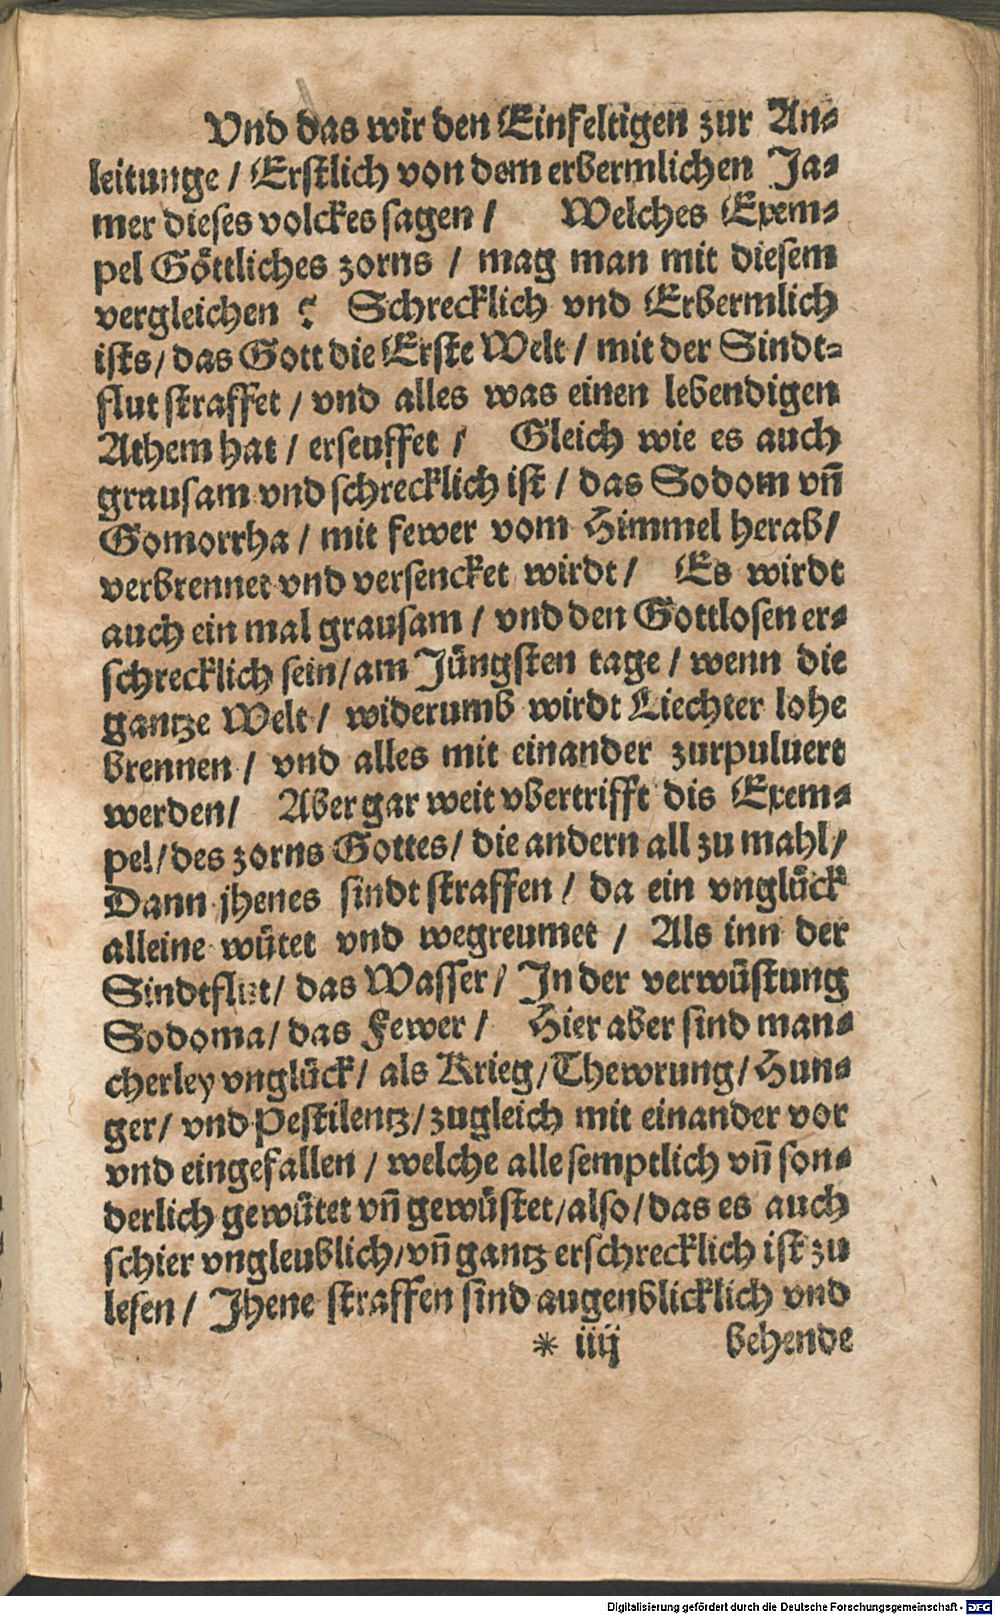 Vnd das wir den Einfeltigen zur An⸗
leitunge / Erstlich von dem erbermlichen Ja⸗
mer dieses volckes sagen / Welches Exem⸗
pel Göttliches zorns / mag man mit diesem
vergleichen ? Schrecklich vnd Erbermlich
ists / das Gott die Erste Welt / mit der Sindt⸗
flut straffet / vnd alles was einen lebendigen
Athem hat / erseuffet / Gleich wie es auch
grausam vnd schrecklich ist / das Sodom vñ
Gomorrha / mit fewer vom Himmel herab /
verbrennet vnd versencket wirdt / Es wirdt
auch ein mal grausam / vnd den Gottlosen er⸗
schrecklich sein / am Jüngsten tage / wenn die
gantze Welt / widerumb wirdt Liechter lohe
brennen / vnd alles mit einander zurpuluert
werden / Aber gar weit vbertrifft dis Exem⸗
pel / des zorns Gottes / die andern all zu mahl /
Dann jhenes sindt straffen / da ein vnglück
alleine wütet vnd wegreumet / Als inn der
Sindtflut / das Wasser / In der verwüstung
Sodoma / das Fewer / Hier aber sind man⸗
cherley vnglück / als Krieg / Thewrung / Hun⸗
ger / vnd Pestilentz / zugleich mit einander vor
vnd eingefallen / welche alle semptlich vñ son⸗
derlich gewütet vñ gewüstet / also / das es auch
schier vngleublich / vñ gantz erschrecklich ist zu
lesen / Jhene straffen sind augenblicklich vnd
* iiij behende
Digitalisierung gefördert durch die Deutsche Forschungsgemeinschaft - DFG